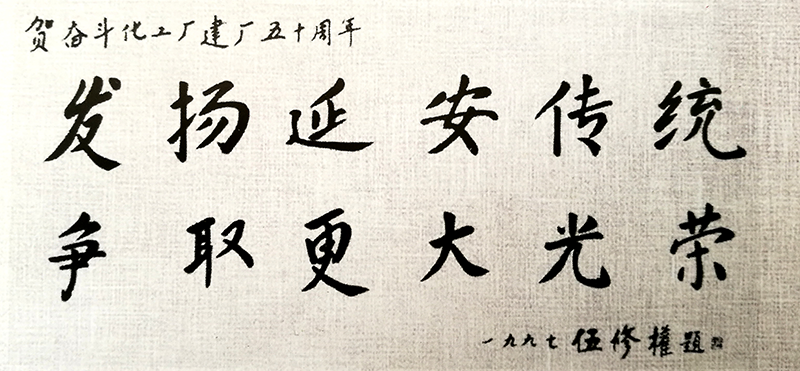 贺奋斗化工厂建厂五十周年
发扬延安传统
争取更大光荣
一九九七 伍修權題